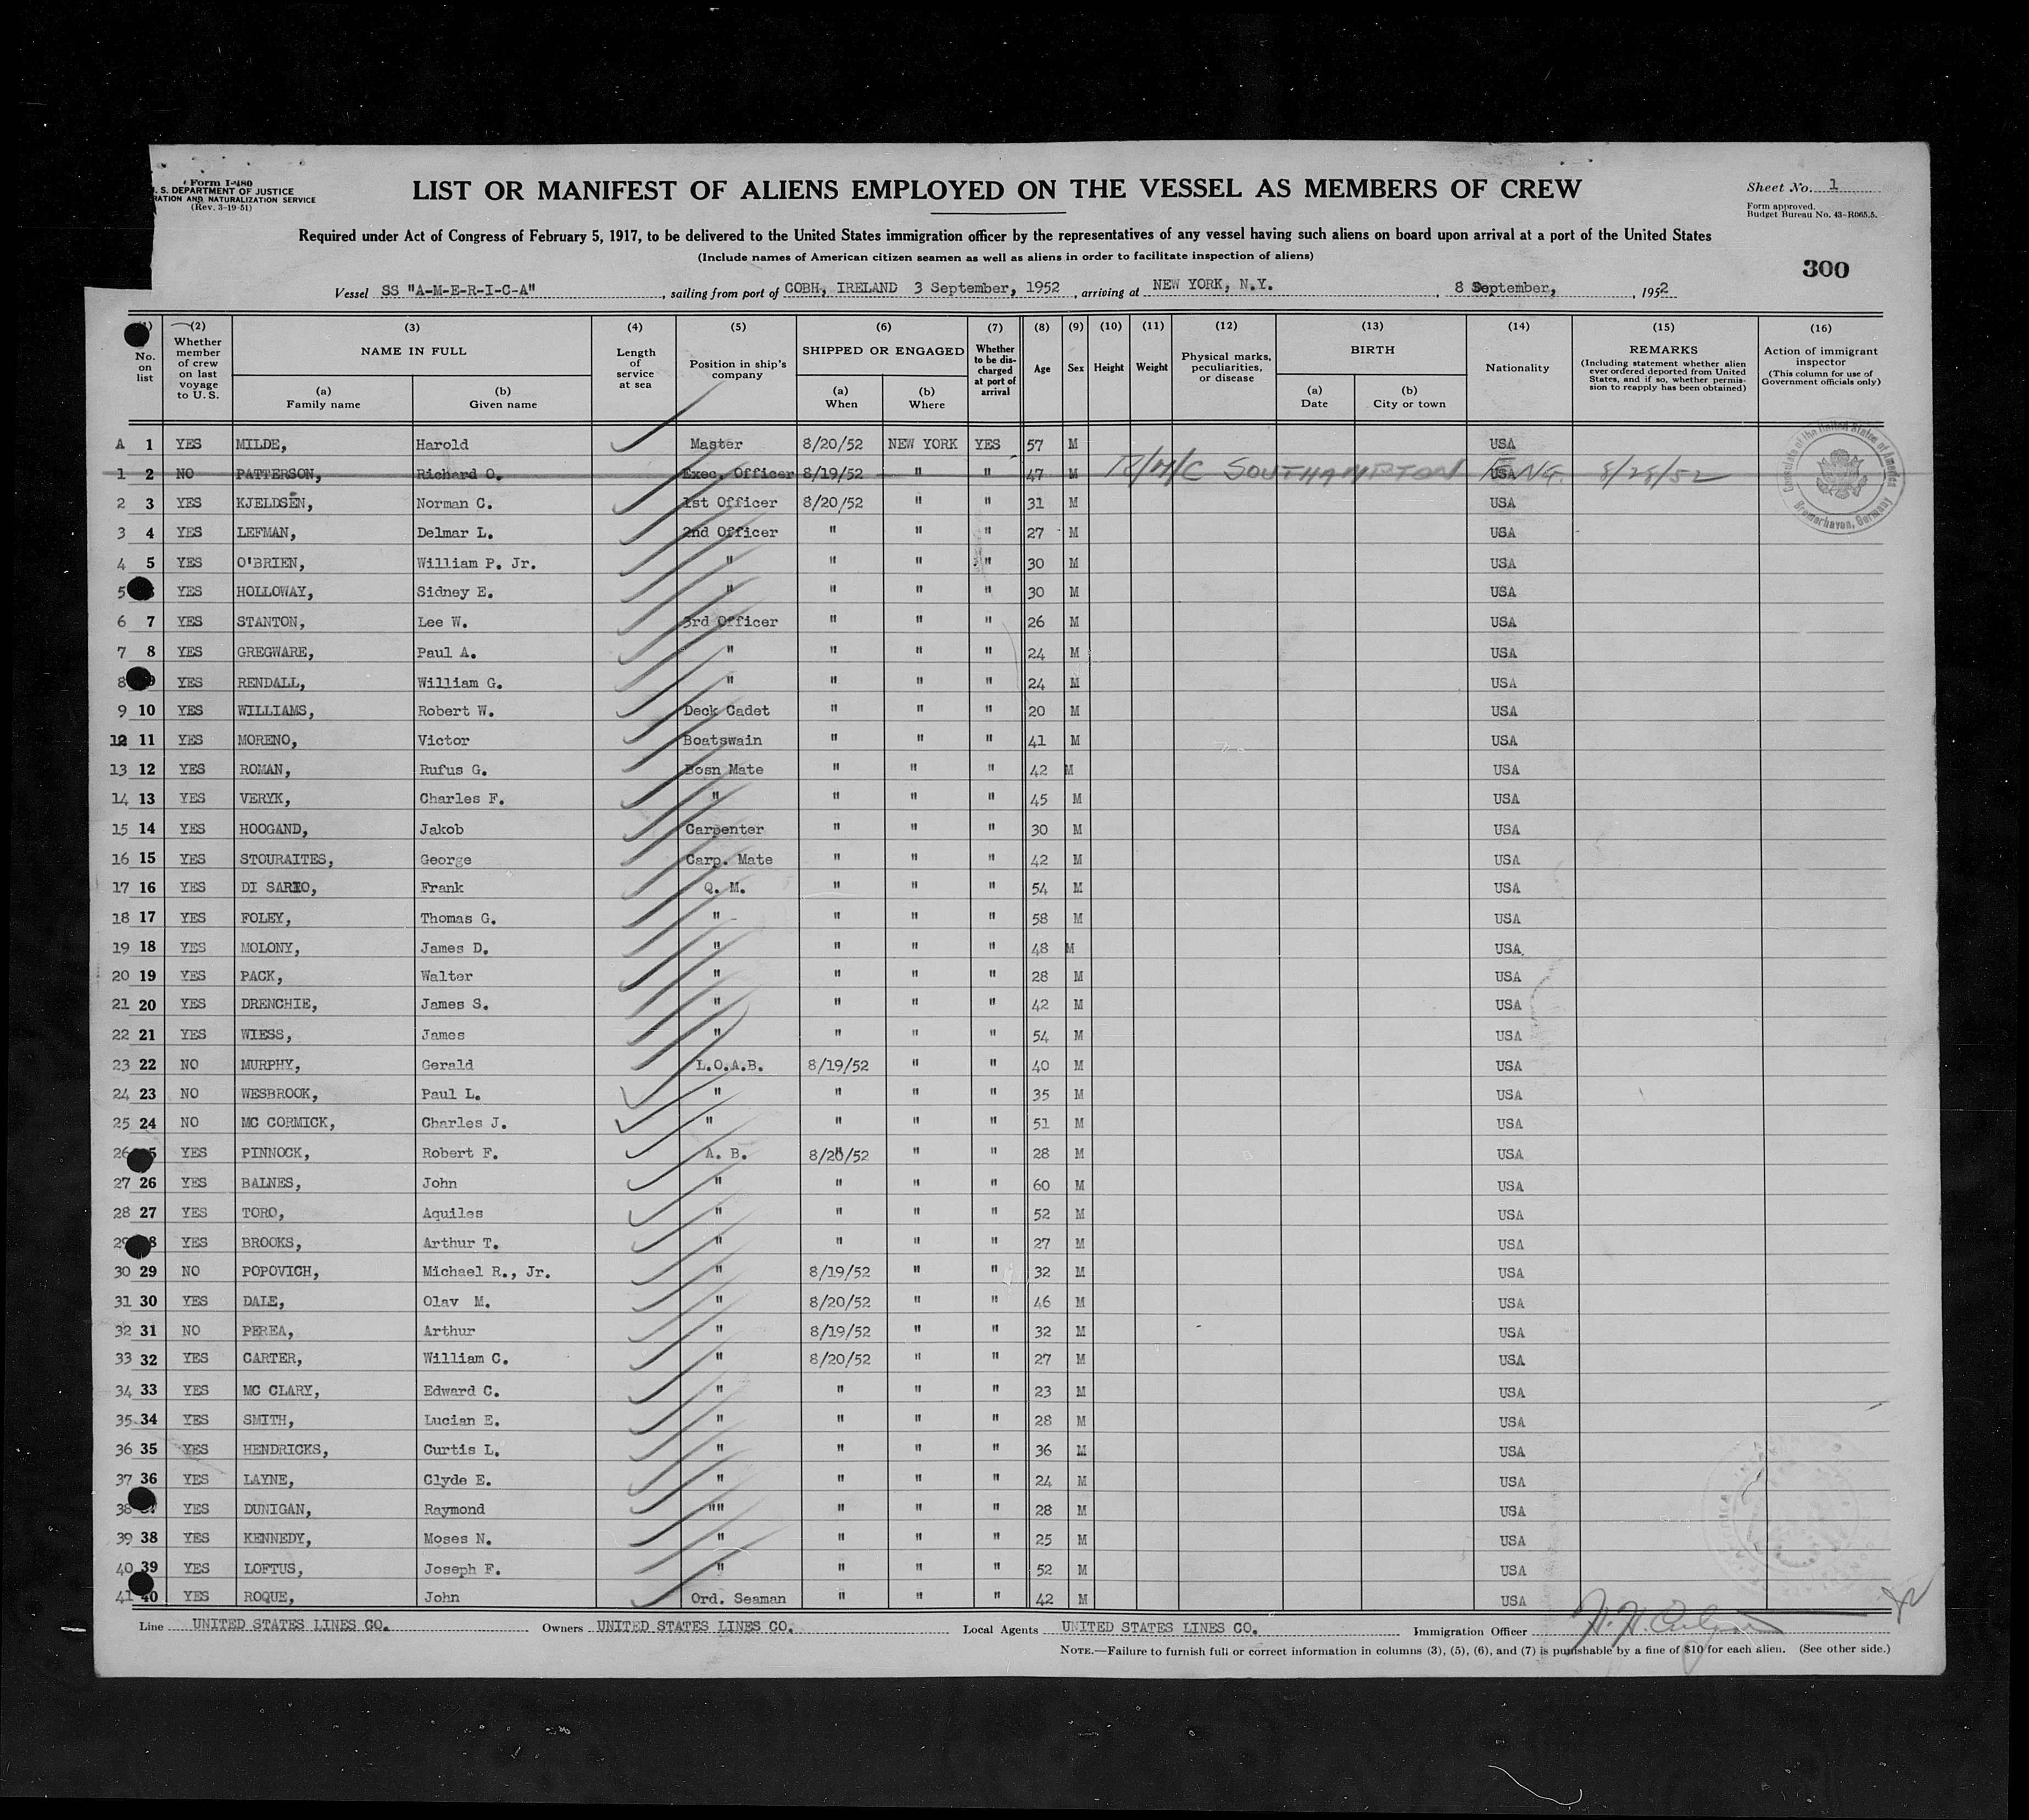 Form I-480
U. S. DEPARTMENT OF JUSTICE
RATION AND NATURALIZATION SERVICE
(Rev. 3-19-51)
LIST OR MANIFEST OF ALIENS EMPLOYED ON THE VESSEL AS MEMBERS OF CREW
Sheet No. 1
Form approved.
Budget Bureau No. 43-R065.5.
Required under Act of Congress of February 5, 1917, to be delivered to the United States immigration officer by the representatives of any vessel having such aliens on board upon arrival at a port of the United States
(Include names of American citizen seamen as well as aliens in order to facilitate inspection of aliens)
300
Vessel SS "A-M-E-R-I-C-A", sailing from port of COBH, IRELAND 3 September, 1952, arriving at NEW YORK, N.Y., 8 September, 1952
(1) (2) (3) (4) (5) (6) (7) (8) (9) (10) (11) (12) (13) (14) (15) (16)
No. on list
Whether member of crew on last voyage to U. S.
NAME IN FULL
(a) Family name
(b) Given name
Length of service at sea
Position in ship's company
SHIPPED OR ENGAGED
(a) When
(b) Where
Whether to be discharged at port of arrival
Age
Sex
Height
Weight
Physical marks, peculiarities, or disease
BIRTH
(a) Date
(b) City or town
Nationality
REMARKS
(Including statement whether alien ever ordered deported from United States, and if so, whether permission to reapply has been obtained)
Action of immigrant inspector
(This column for use of Government officials only)
A 1 YES MILDE, Harold Master 8/20/52 NEW YORK YES 57 M USA
1 2 NO PATTERSON, Richard O. Exec. Officer 8/19/52 " " 47 M USA SOUTHAMPTON ENG. 8/28/52
2 3 YES KJELDSEN, Norman C. 1st Officer 8/20/52 " " 31 M USA
3 4 YES LEFMAN, Delmar L. 2nd Officer " " " 27 M USA
4 5 YES O'BRIEN, William P. Jr. " " " " 30 M USA
5 YES HOLLOWAY, Sidney E. " " " " 30 M USA
6 7 YES STANTON, Lee W. 3rd Officer " " " 26 M USA
7 8 YES GREGWARE, Paul A. " " " " 24 M USA
8 9 YES RENDALL, William G. " " " " 24 M USA
9 10 YES WILLIAMS, Robert W. Deck Cadet " " " 20 M USA
12 11 YES MORENO, Victor Boatswain " " " 41 M USA
13 12 YES ROMAN, Rufus G. Bosn Mate " " " 42 M USA
14 13 YES VERYK, Charles F. " " " " 45 M USA
15 14 YES HOOGAND, Jakob Carpenter " " " 30 M USA
16 15 YES STOURAITES, George Carp. Mate " " " 42 M USA
17 16 YES DI Frank Q. M. " " " 54 M USA
18 17 YES FOLEY, Thomas G. " " " " 58 M USA
19 18 YES MOLONY, James D. " " " " 48 M USA
20 19 YES PACK, Walter " " " " 28 M USA
21 20 YES DRENCHIE, James S. " " " " 42 M USA
22 21 YES WIESS, James " " " " 54 M USA
23 22 NO MURPHY, Gerald L.O.A.B. 8/19/52 " " 40 M USA
24 23 NO WESBROOK, Paul L. " " " " 35 M USA
25 24 NO MC CORMICK, Charles J. " " " " 51 M USA
26 5 YES PINNOCK, Robert F. A. B. 8/20/52 " " 28 M USA
27 26 YES BAINES, John " " " " 60 M USA
28 27 YES TORO, Aquiles " " " " 52 M USA
29 8 YES BROOKS, Arthur T. " " " " 27 M USA
30 29 NO POPOVICH, Michael R., Jr. " 8/19/52 " " 32 M USA
31 30 YES DALE, Olav M. " 8/20/52 " " 46 M USA
32 31 NO PEREA, Arthur " 8/19/52 " " 32 M USA
33 32 YES CARTER, William C. " 8/20/52 " " 27 M USA
34 33 YES MC CLARY, Edward C. " " " " 23 M USA
35 34 YES SMITH, Lucian E. " " " " 28 M USA
36 35 YES HENDRICKS, Curtis L. " " " " 36 M USA
37 36 YES LAYNE, Clyde E. " " " " 24 M USA
38 YES DUNIGAN, Raymond "" " " " 28 M USA
39 38 YES KENNEDY, Moses N. " " " " 25 M USA
40 39 YES LOFTUS, Joseph F. " " " " 52 M USA
41 40 YES ROQUE, John Ord. Seaman " " " 42 M USA
Consulate of the United States of America
Bremerhaven, Germany
Line UNITED STATES LINES CO. Owners UNITED STATES LINES CO. Local Agents UNITED STATES LINES CO. Immigration Officer
NOTE.—Failure to furnish full or correct information in columns (3), (5), (6), and (7) is punishable by a fine of $10 for each alien. (See other side.)